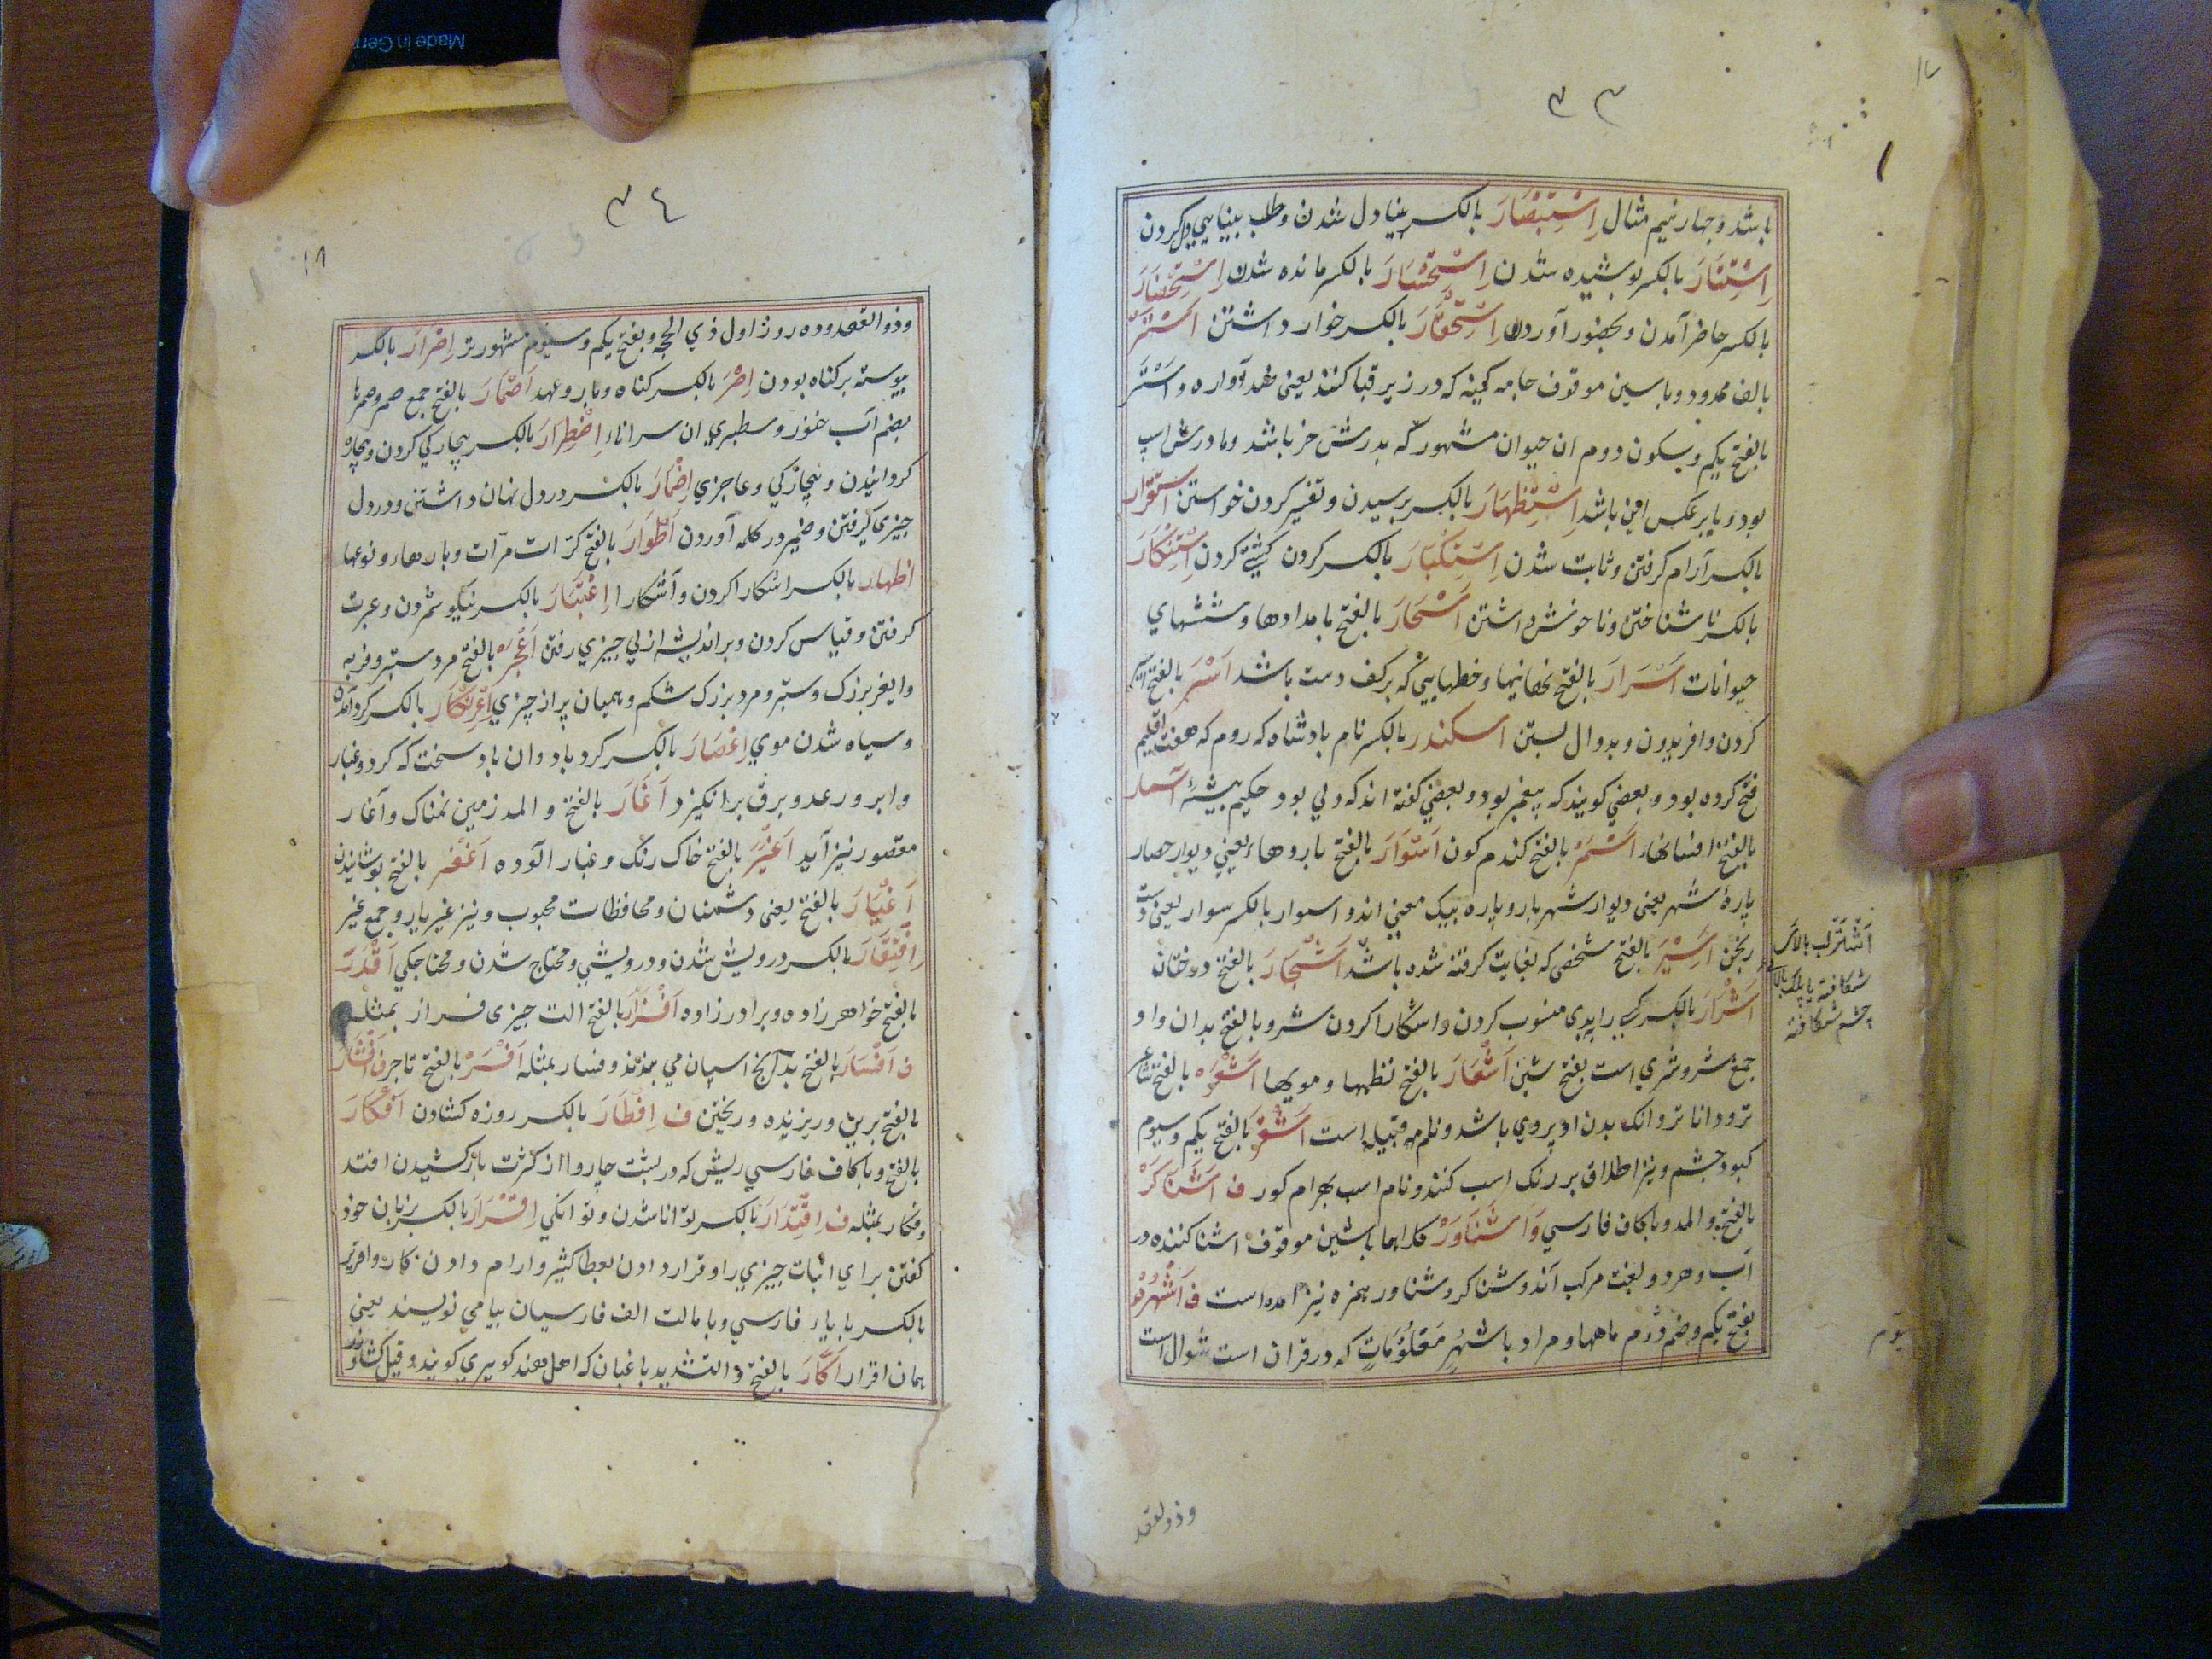 ٣٣
باشد و چهار نیم مثال اِسْتِبْصَارَ بالکسر بینا دل شدن و طلب بینایی دل کردن
اِسْتِتَارَ بالکسر پوشیده شدن اِسْتِحْسَارَ بالکسر مانده شدن اِسْتِحْضَارَ
بالکسر حاضر آمدن و بحضور آوردن اِسْتِحْقَارَ بالکسر خوار داشتن اَسْتَرْ
بالف ممدود و با سین موقوف جامه کهینه که در زیر قبا کنند یعنی ضد آواره و اَسْتَر
بالفتح یکم و بسکون دوم ان حیوان مشهور که پدرش خر باشد و مادرش اسپ
بود و یا برعکس این باشد اِسْتِظْهَارَ بالکسر پرسیدن و تفسیر کردن خواستن اِسْتِقْرَار
بالکسر آرام گرفتن و ثابت شدن اِسْتِکْبَارَ بالکسر کردن کشی کردن اِسْتِنْکَارَ
بالکسر ناشناختن و ناخوش داشتن اَسْحَارَ بالفتح بامدادها و ششهای
حیوانات اَسْرَارَ بالفتح نهانیها و خطهایی که بر کف دست باشد اَسْرَ بالفتح اسیر
کردن و افریدون و بدوال بستن اسکندر بالکسر نام بادشاه که روم که هفت اقلیم
فتح کرده بود و بعضی کویند که پیغمبر بود و بعضی کفته اند که ولی بود حکیم پیشهٔ اسمار
بالفتح افسانها اَسْمَرْ بالفتح کندم کون اَسْوَارَ بالفتح باروها یعنی دیوار حصار
پارهٔ شهر یعنی دیوار شهر بارو پاره بیک معنی اند و اسوار بالکسر سوار یعنی دست
رنجن اَسِیْرَ بالفتح شخصی که بغایت کرفته شده باشد اَشْجَارَ بالفتح درختان
اَشْرَارَ بالکسر کسی را ببدی منسوب کردن و اشکارا کردن شر و بالفتح بدان و او
جمع شر و شری است بفتح شین اَشْعَارَ بالفتح نظمها و مویها اَشْعَرْ بالفتح شاعر
تر و داناتر و انک بدن او پر موی باشد و نام قبیله است اَشْقَرْ بالفتح یکم و سیوم
کبود چشم و نیز اطلاق بر رنک اسب کنند و نام اسب بهرام کور ف اَشْنَاکَرْ
بالفتح و المد و با کاف فارسی وَاَشْنَاوَرْ کلاهما با شین موقوف اشنا کننده در
آب و هر دو لغت مرکب آند و شنا کر و شناور بی همزه نیز امده است ف اَشْهُرْ
بفتح یکم و ضم دوم ماهها و مراد باشْهُرٍ مَعْلُوْمَاتٍ که در قران است شوال است
اَشْتَرْ لب بالا
شکافته یا پلک بالا
چشم شکافته
و ذو لقعد
٣٤
و ذو القعد و ده روز اول ذی الحجه و بفتح یکم و سیوم مشهورتر اِصْرَارَ بالکسر
پیوسته بر کناه بودن اِصْرَ بالکسر کناه و بار و عهد اَصْمَارَ بالفتح جمع صمر و صمرها
بضم آب خنور و سطبری ان سراناء اِضْطِرَارَ بالکسر بیچارکی کردن و بیچاره
کردانیدن و بیچارکی و عاجزی اِضْمَارَ بالکسر در دل نهان داشتن و در دل
چیزی گرفتن و ضمیر در کلمه آوردن اَطْوَارَ بالفتح کرّات مرّات و بارهاء و نوعها
اظهار بالکسر اشکارا کردن و آشکارا اِعْتِبَارَ بالکسر نیکو شمردن و عبرت
کرفتن و قیاس کردن و بر اندیشه از پی چیزی رفتن اَعْجَرْ بالفتح مرد ستبر و فربه
و ایغر بزرک و ستبر و مرد بزرک شکم و همیان پر از چیزی اِعْتِکَارَ بالکسر کرد آمدن
و سیاه شدن موی اِعْصَارَ بالکسر کرد باد و ان باد سخت که کرد و غبار
و ابر و رعد و برق بر انکیزد آغَارَ بالفتح و المد زمین نمناک و آغار
مقصور نیز آید اَغْبَرْ بالفتح خاک رنک و غبار الوده اَغْفَرْ بالفتح پوشانیدن
اَغْیَارَ بالفتح یعنی دشمنان و محافظات محبوب و نیز غیر یار و جمع غیر
اِفْتِقَارَ بالکسر درویش شدن و درویشی و محتاج شدن و محتاجکی اَفْدَرْ
بالفتح خواهر زاده و برادر زاده اَفْزَارْ بالفتح الت چیزی فراز بمثله
ف اَفْسَارَ بالفتح بدآنچ اسپان می بندند و فسار بمثله اَفْسَرْ بالفتح تاج ف اَفْشَار
بالفتح بریین و ریزنده و ریختن ف اِفْطَارَ بالکسر روزه کشادن اَفْکَارَ
بالفتح و با کاف فارسی ریش که در پشت چاروا از کثرت بار کشیدن افتد
و فکار بمثله ف اِقْتِدَارَ بالکسر توانا شدن و توانکی اِقْرَارَ بالکسر بزبان خود
کفتن برای اثبات چیزی را و قرار دادن بعطا کثیر و ارام دادن بکار و اقریر
بالکسر با یاء فارسی و با مالت الف فارسیان بیا می نویسند یعنی
همان اقرار اَکَّارَ بالفتح و التشدید باغبان که اهل هند کویری کویند و قیل کشاورز